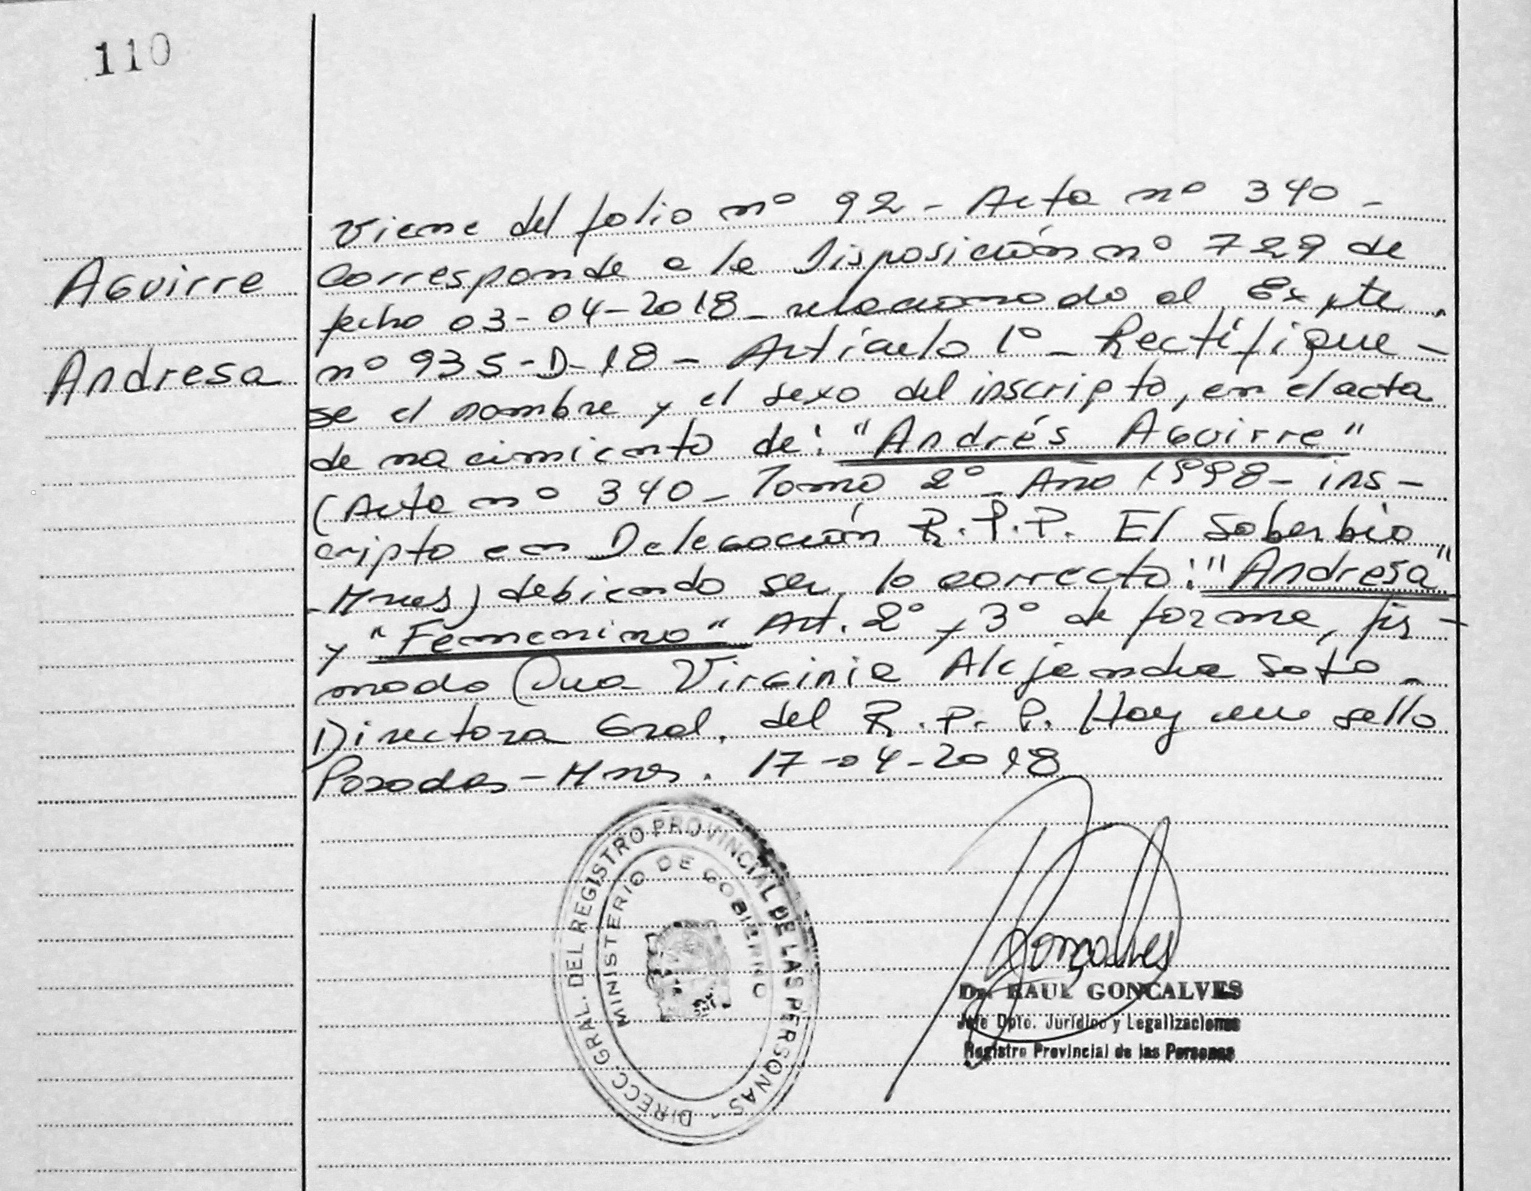 110
Aguirre
Andresa
Viene del folio nº 92 - Acta nº 340 -
Corresponde a la Disposición nº 729 de
fecha 03-04-2018 - relacionado al Expte.
nº 935-D-18 - Artículo 1º - Rectifíque-
se el nombre y el sexo del inscripto, en el acta
de nacimiento de: "Andrés Aguirre"
(Acta nº 340 - Tomo 2º - Año 1998 - ins-
cripto en Delegación R.P.P. El Soberbio
- Mnes) debiendo ser lo correcto: "Andresa"
y "Femenino" Art. 2º y 3º de forma, fir-
mado Dra Virginia Alejandra Soto -
Directora Gral. del R.P.P. Hay un sello
Posadas - Mnes. 17-04-2018
DIRECC. GRAL. DEL REGISTRO PROVINCIAL DE LAS PERSONAS -
MINISTERIO DE GOBIERNO
Gonçalves
Dr. RAUL GONCALVES
Jefe Dpto. Jurídico y Legalizaciones
Registro Provincial de las Personas